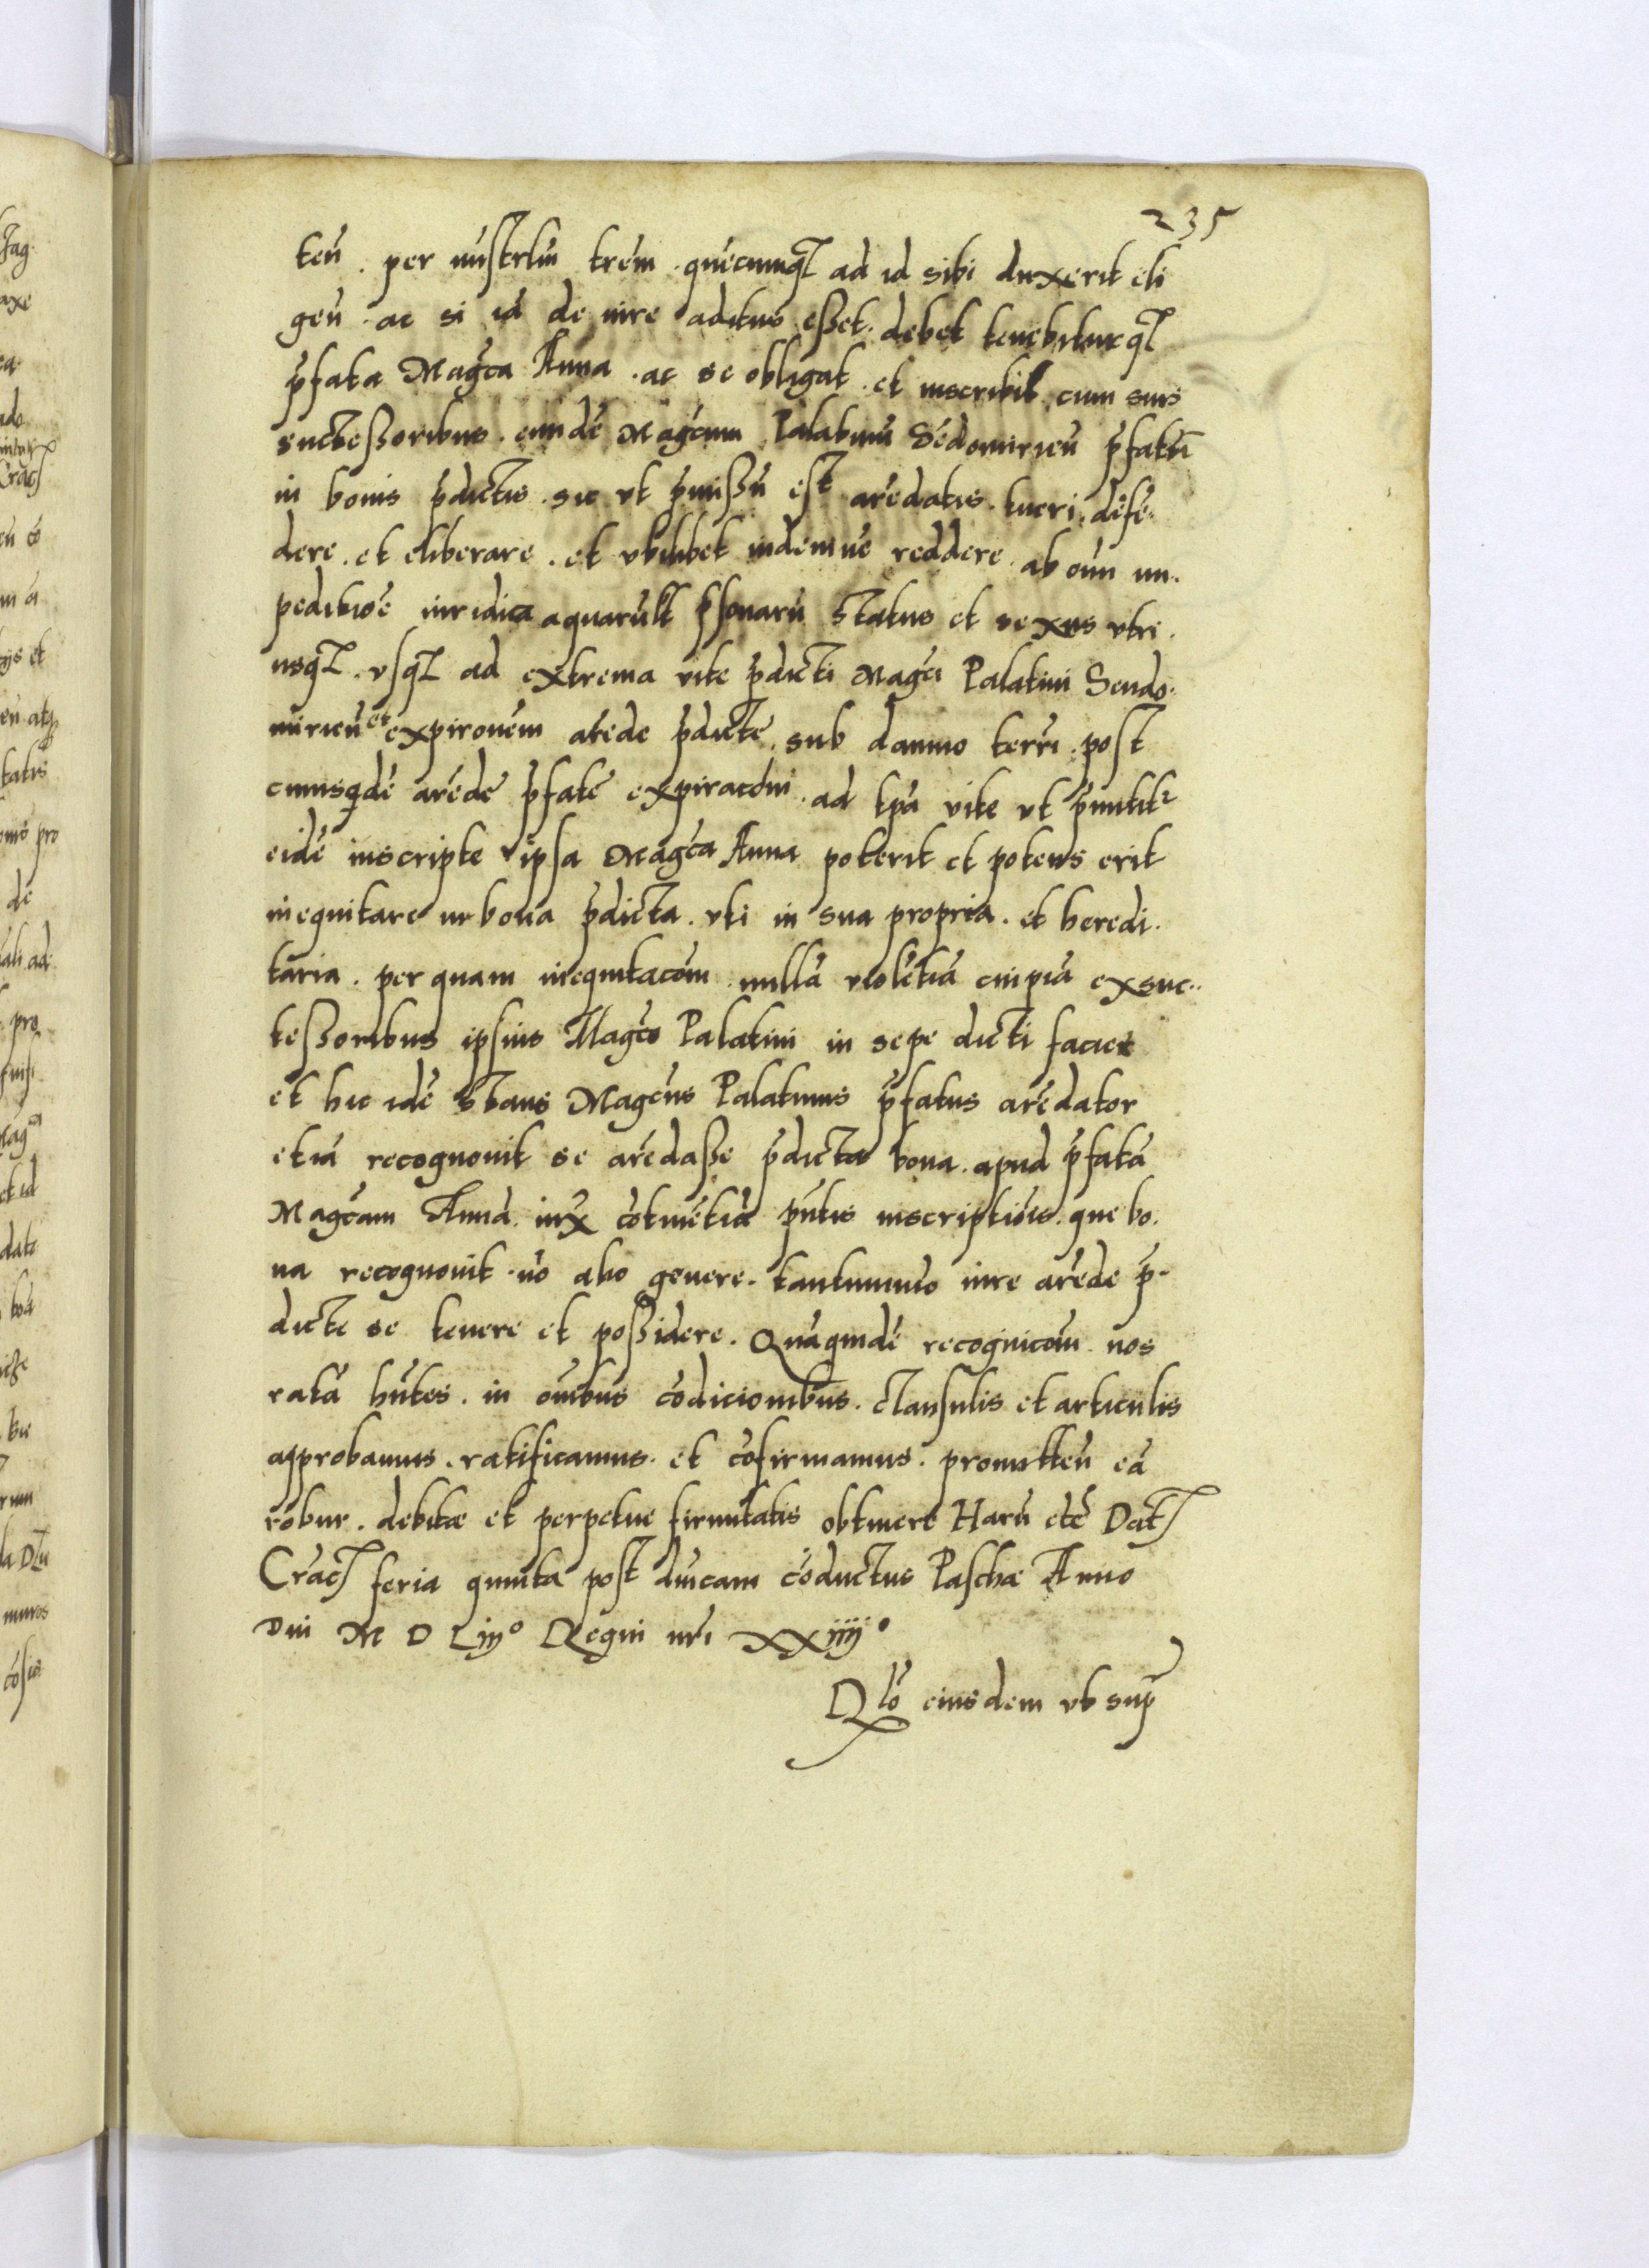 235
teñ. per ministrlm̃ trẽm. quẽcumq̃ ad id sibi duxerit eli
geñ. ac si id de iure aditus esset. debet tenebiturq̃
p̃fata Magca Anna. ac se obligat. et inscribit cum suis
successoribus. eundẽ Magcum Palatinũ Sẽdomirieñ p̃fatũ
in bonis p̃dictis. sic vt p̃missũ est arẽdatis. tueri. defẽ.
dere. et eliberare. et vbilibet indemnẽ reddere. ab oĩm im.
peditiõe iuridica a quarũlt p̃sonarũ status et sexus vtri.
usq̃. vsq̃ ad extrema vite p̃dicti Magci Palatini Sendo.
mirieñ et expirõnem arẽde p̃dictẽ. sub damno terri. post
cuiusq̃dẽ arẽde p̃fatẽ expiracõni. ad tpã vite vt p̃mittit2
eidẽ inscripte ipsa Magca Anna poterit et potens erit
inequitare in bona p̃dicta. vti in sua propria. et heredi.
taria. per quam inequitacõm nullã violẽtiã cuipiã ex suc..
cessoribus ipsius Magco Palatini in sepe dicti faciet
et hic idẽ stans Magcus Palatinus p̃fatus arẽdator
etiã recognouit se arẽdasse p̃dicta bona. apud p̃fatã
Magcam Annã. iux cõtinẽtiã p̃ntis inscriptiõis. que bo.
na recognouit. nõ alio genere. tantummo iure arẽde p̃.
dicte se tenere et possidere. Quãquidẽ recognicõm nos
ratã hñtes. in oĩbus cõdicionibus. clausulis et articulis
approbamus. ratificamus. et cõfirmamus. promitteñ eã
robur. debitae et perpetue firmitatis obtinere Harũ etc̃ Dat
Crac feria quinta post dnicam cõductus Paschae Anno
Dni M D Liij° Regni nri xxiiij°
Rlõ eiusdem vt sup̃